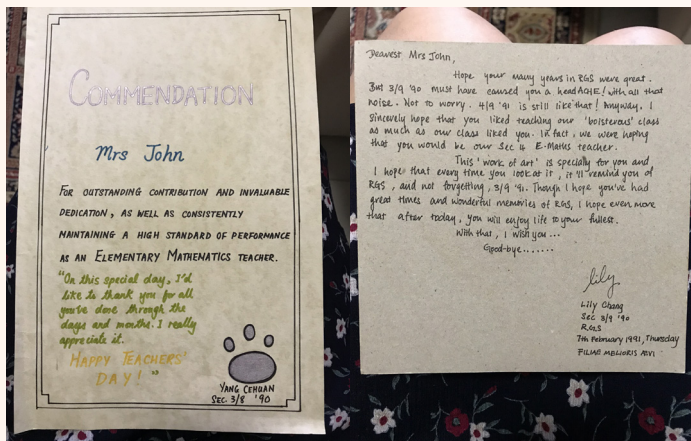 COMMENDATION
Mrs John
FOR OUTSTANDING CONTRIBUTION AND INVALUABLE
DEDICATION, AS WELL AS CONSISTENTLY
MAINTAINING A HIGH STANDARD OF PERFORMANCE
AS AN ELEMENTARY MATHEMATICS TEACHER.
"On this special day, I'd
like to thank you for all
you've done through the
days and months. I really
appreciate it.
HAPPY TEACHERS'
DAY! "
YANG CEHUAN
SEC. 3/8 '90
Dearest Mrs John,
Hope your many years in RGS were great.
But 3/9 '90 must have caused you a headACHE! with all that
noise. Not to worry. 4/9 '91 is still like that! Anyway, I
sincerely hope that you liked teaching our 'boisterous' class
as much as our class liked you. In fact, we were hoping
that you would be our Sec 4 E-Maths teacher.
This 'work of art' is specially for you and
I hope that every time you look at it, it'll remind you of
RGS, and not forgetting, 3/9 '91. Though I hope you've had
great times and wonderful memories of RGS, I hope even more
that after today, you will enjoy life to your fullest.
With that, I wish you...
Good-bye.......
lily
Lily Chang
Sec 3/9 '90
R.G.S
7th February 1991, Thursday
FILIAE MELIORIS AEVI